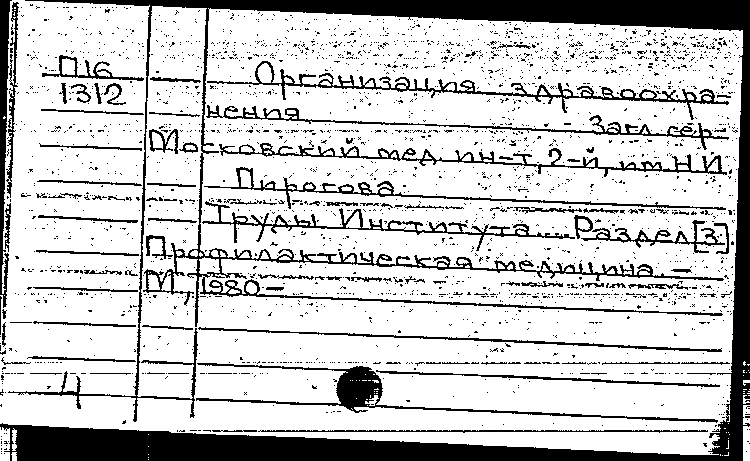 П16
1312
Организация здравоохра-
нения - Загл. сер.
Московский мед. ин-т, 2-й, им. Н.И.
Пирогова.
Труды Института.... Раздел [3].
Профилактическая медицина. -
М., 1980-
4